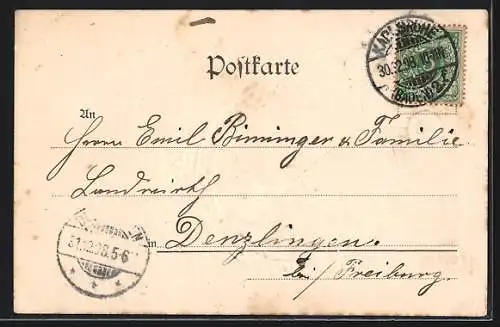 KARLSRUHE
30.12.98. 10-11N.
(BADEN) 2
Postkarte
An
Herrn Emil Binninger & Familie
Landwirth
in Denzlingen.
bei / Freiburg.
31.12.98. 5-6